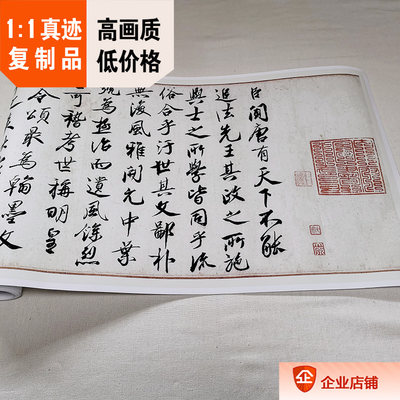 1:1真迹
复制品
高画质
低价格
臣聞唐有天下不能
追法先王其政之所施
與士之所學皆同乎流
俗合乎汙世其文鄙朴
無復風雅開元中業
號為盛治而遺風餘烈
可稽考世稱明皇
令頌最為翰墨文
企业店铺